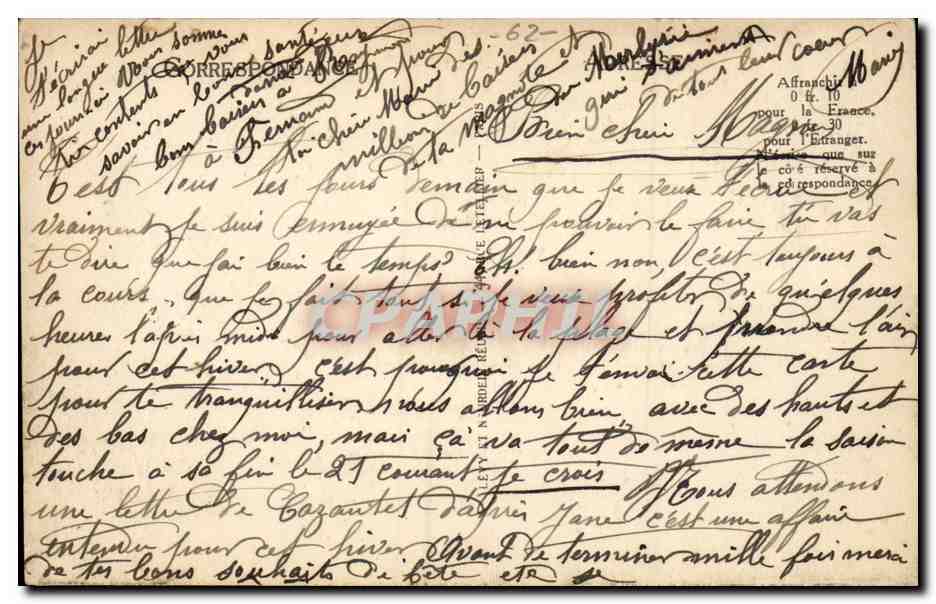 -62-
CORRESPONDANCE
ADRESSE
Affranchir à
0 fr. 10
pour la France,
30
pour l'Etranger.
N'écrire que sur
le côté réservé à
la correspondance.
LEVY ET NEURDEIN RÉUNIS
LETELLIER — PARIS
CPARHIL
Bien chère Magne
C'est tous les jours demain que je veux t'écrire et
vraiment je suis ennuyée de ne pouvoir le faire tu vas
te dire que j'ai bien le temps? Eh! bien non, c'est toujours à
la course, que je fais tout, si je veux profiter de quelques
heures l'après midi pour aller à la plage et prendre l'air
pour cet hiver, c'est pourquoi je t'envoi cette carte
pour te tranquilliser nous allons bien avec des hauts et
des bas chez moi, mais ça va tout de même la saison
touche à sa fin le 25 courant je crois Nous attendons
une lettre de Cazautet d'après Jane c'est une affaire
entendu pour cet hiver Avant de terminer mille fois merci
de tes bons souhaits de fête ete
je
t'écrirai lettre
une longue
ces jours ci Nous sommes
contents vous
savoir en bonne santé
bons baisers à
à Fernand et pour
toi chère Mami des
millions de baisers
de la Magnote et
qui t'aiment
de tout leur coeur
Mami